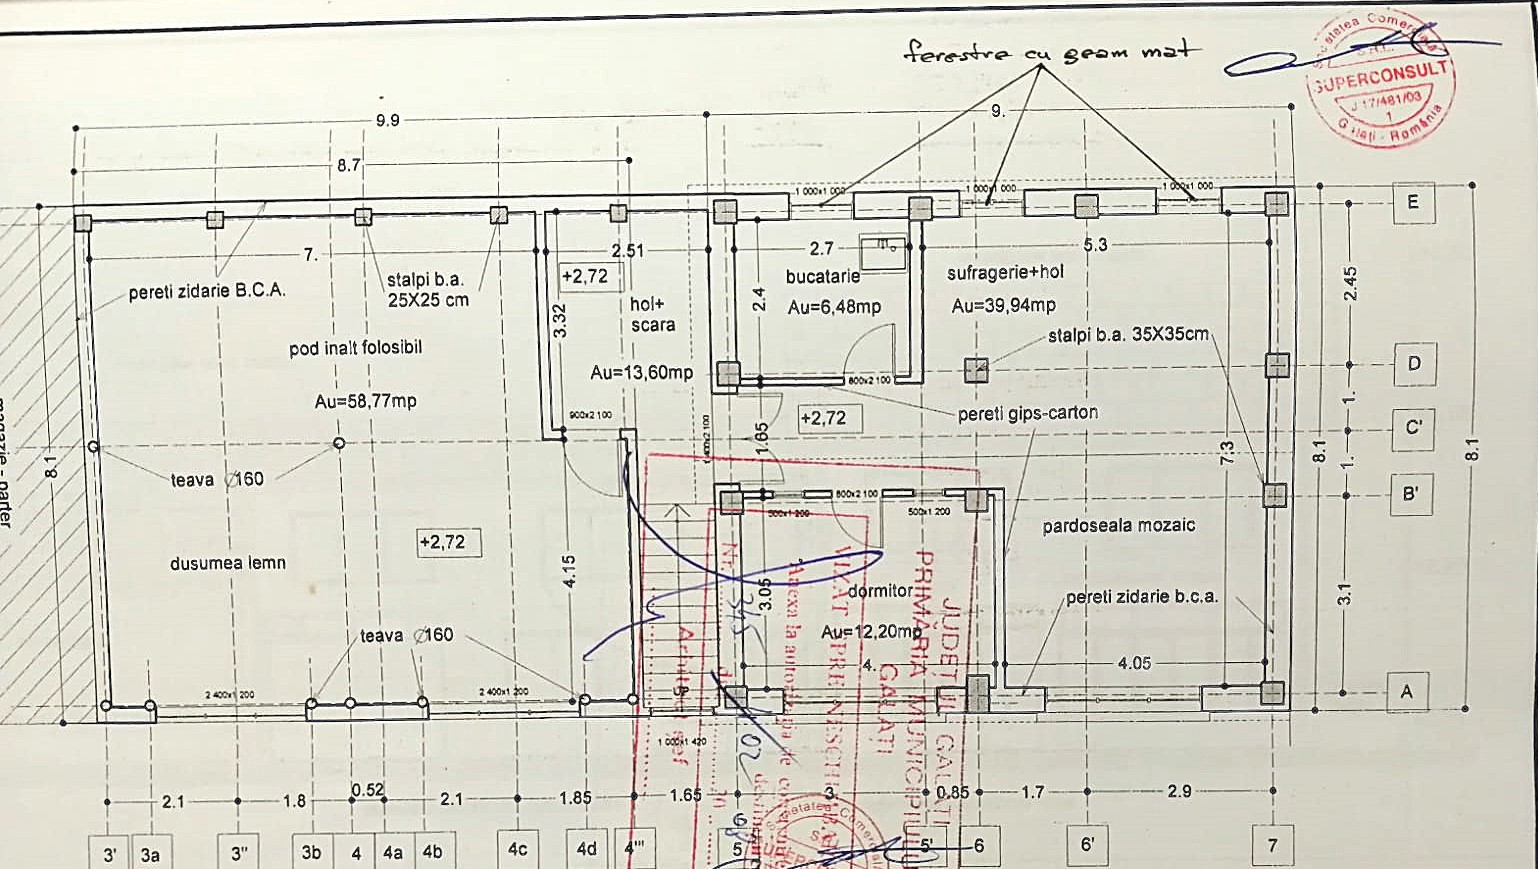 ferestre cu geam mat
Societatea Comercială
S.R.L.
SUPERCONSULT
J 17/481/03
1
Galați - România
9.9
9.
8.7
1 000x1 000
1 000x1 000
1 000x1 000
E
7.
2.51
2.7
5.3
+2,72
stalpi b.a.
25X25 cm
pereti zidarie B.C.A.
hol+
scara
3.32
2.4
bucatarie
Au=6,48mp
sufragerie+hol
Au=39,94mp
2.45
pod inalt folosibil
stalpi b.a. 35X35cm
Au=13,60mp
D
800x2 100
Au=58,77mp
900x2 100
+2,72
pereti gips-carton
1.
C'
1.65
7.3
8.1
8.1
8.1
1.
magazie - parter
teava Ø160
800x2 100
B'
500x1 200
500x1 200
pardoseala mozaic
+2,72
dusumea lemn
4.15
3.05
dormitor
Au=12,20mp
pereti zidarie b.c.a.
3.1
teava Ø160
4.
4.05
2 400x1 200
2 400x1 200
UP
A
1 000x1 420
JUDEȚUL GALAȚI
PRIMĂRIA MUNICIPIULUI
GALAȚI
VIZAT SPRE NESCHIMBARE
Anexa la autorizația de
Nr. 345
Arhitect șef
2.1
1.8
0.52
2.1
1.85
1.65
3.
0.85
1.7
2.9
3'
3a
3''
3b
4
4a
4b
4c
4d
4'''
5
5'
6
6'
7